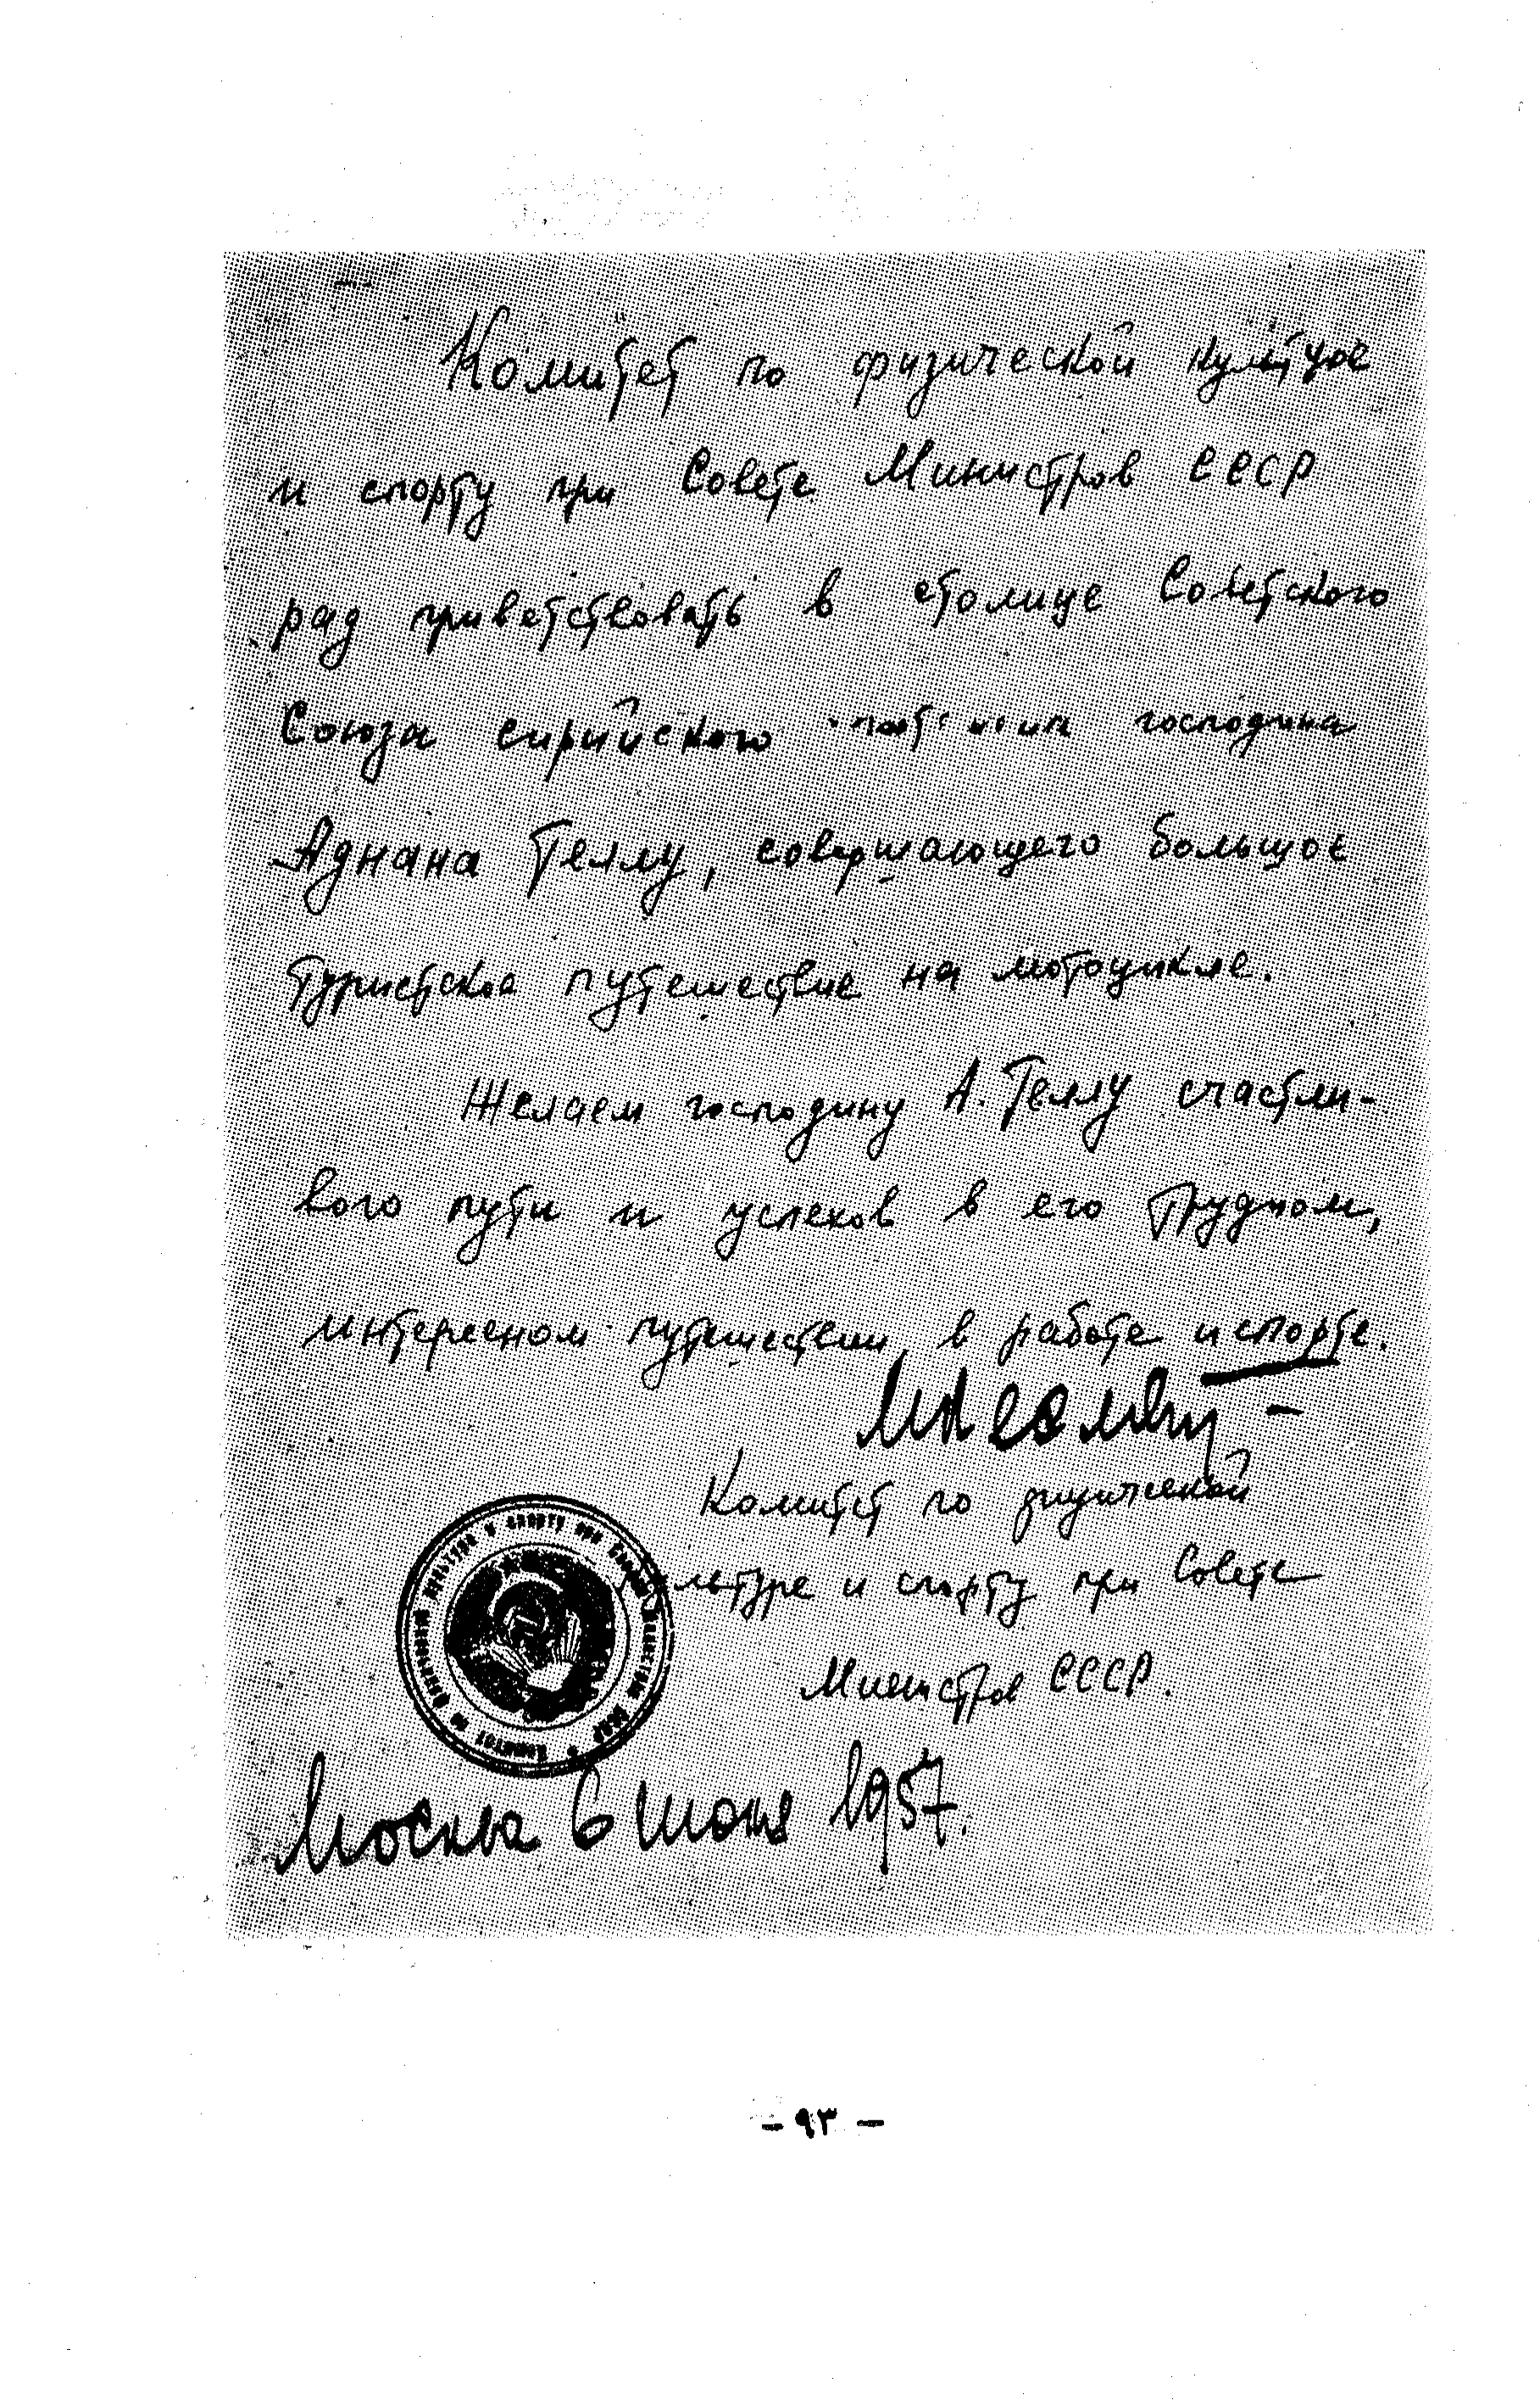 Комитет по физической культуре
и спорту при Совете Министров СССР
рад приветствовать в столице Советского
Союза сирийского господина
Аднана Теллу, совершающего большое
туристское путешествие на мотоцикле.
Желаем господину А. Теллу счастли-
вого пути и успехов в его трудном,
интересном путешествии, в работе и спорте.
Комитет по физической
культуре и спорту при Совете
Министров СССР.
Комитет по физической культуре и спорту при Совете Министров СССР
Москва 6 июня 1957.
- ٩٣ -